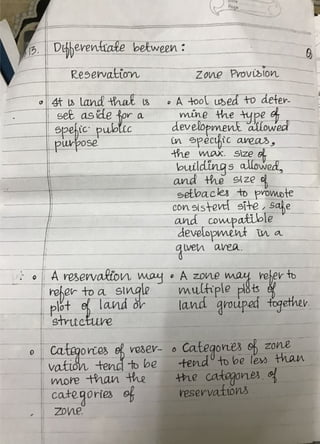 Page
13. Differentiate between :
Reservation
Zone Provision
• It is land that is
set aside for a
spefic public
purpose
• A tool used to deter-
mine the type of
development allowed
in specific areas,
the max. size of
buildings allowed,
and the size of
setbacks to promote
consistent site, safe
and compatible
development in a
given area.
• A reservation may
refer to a single
plot of land or
structure
• A zone may refer to
multiple plots of
land grouped together.
• Categories of reser-
vation tend to be
more than the
categories of
zone.
• Categories of zone
tend to be less than
the categories of
reservations